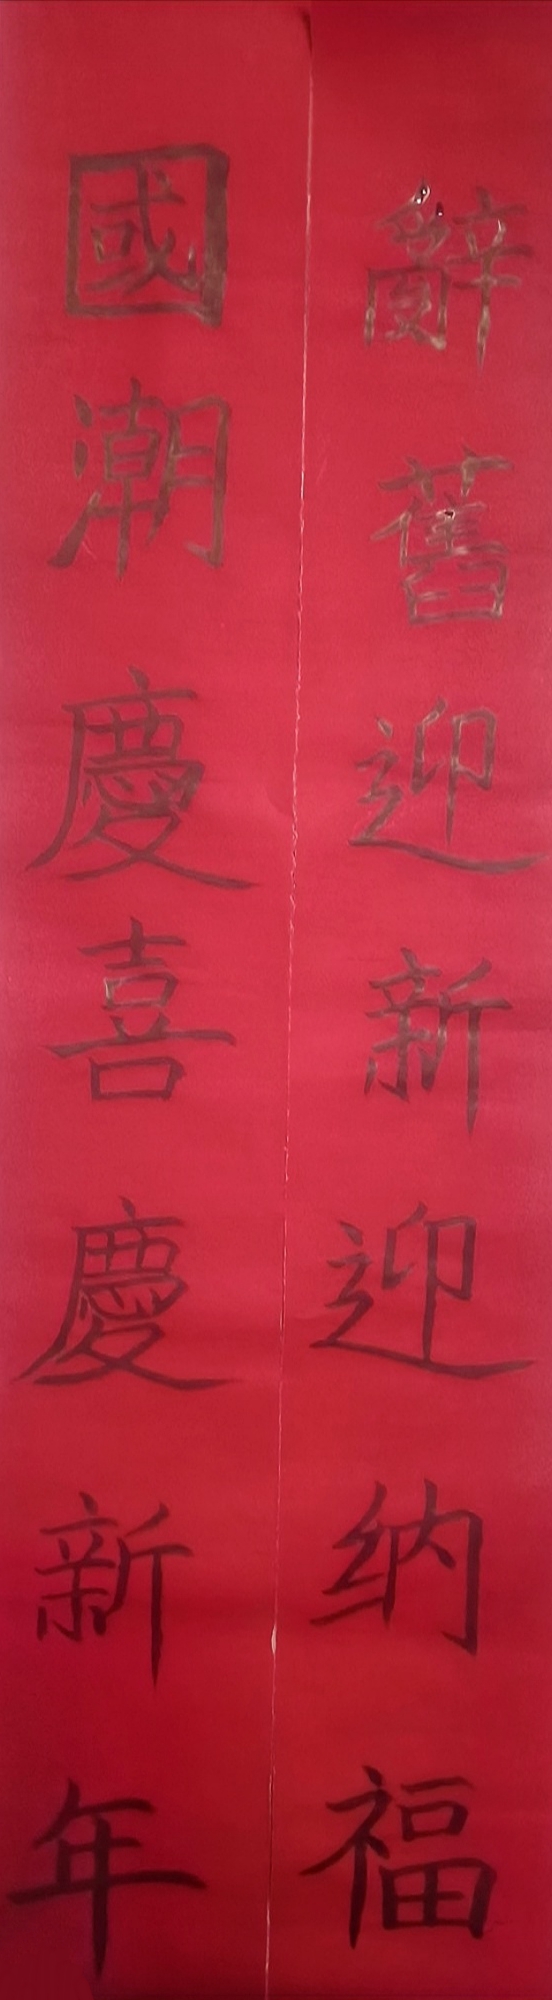 辭舊迎新迎纳福
國潮慶喜慶新年